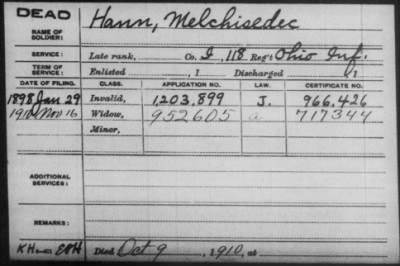 DEAD
NAME OF SOLDIER: Hann, Melchisedec
SERVICE: Late rank, Co. I, 118 Reg't Ohio Inf.
TERM OF SERVICE: Enlisted , 1 Discharged , 1
DATE OF FILING. CLASS. APPLICATION NO. LAW. CERTIFICATE NO.
1898 Jan 29 Invalid, 1,203,899 J. 966,426
1910 Nov 16 Widow, 952605 a 717344
Minor,
ADDITIONAL SERVICES:
REMARKS:
Died Oct 9, 1910, at